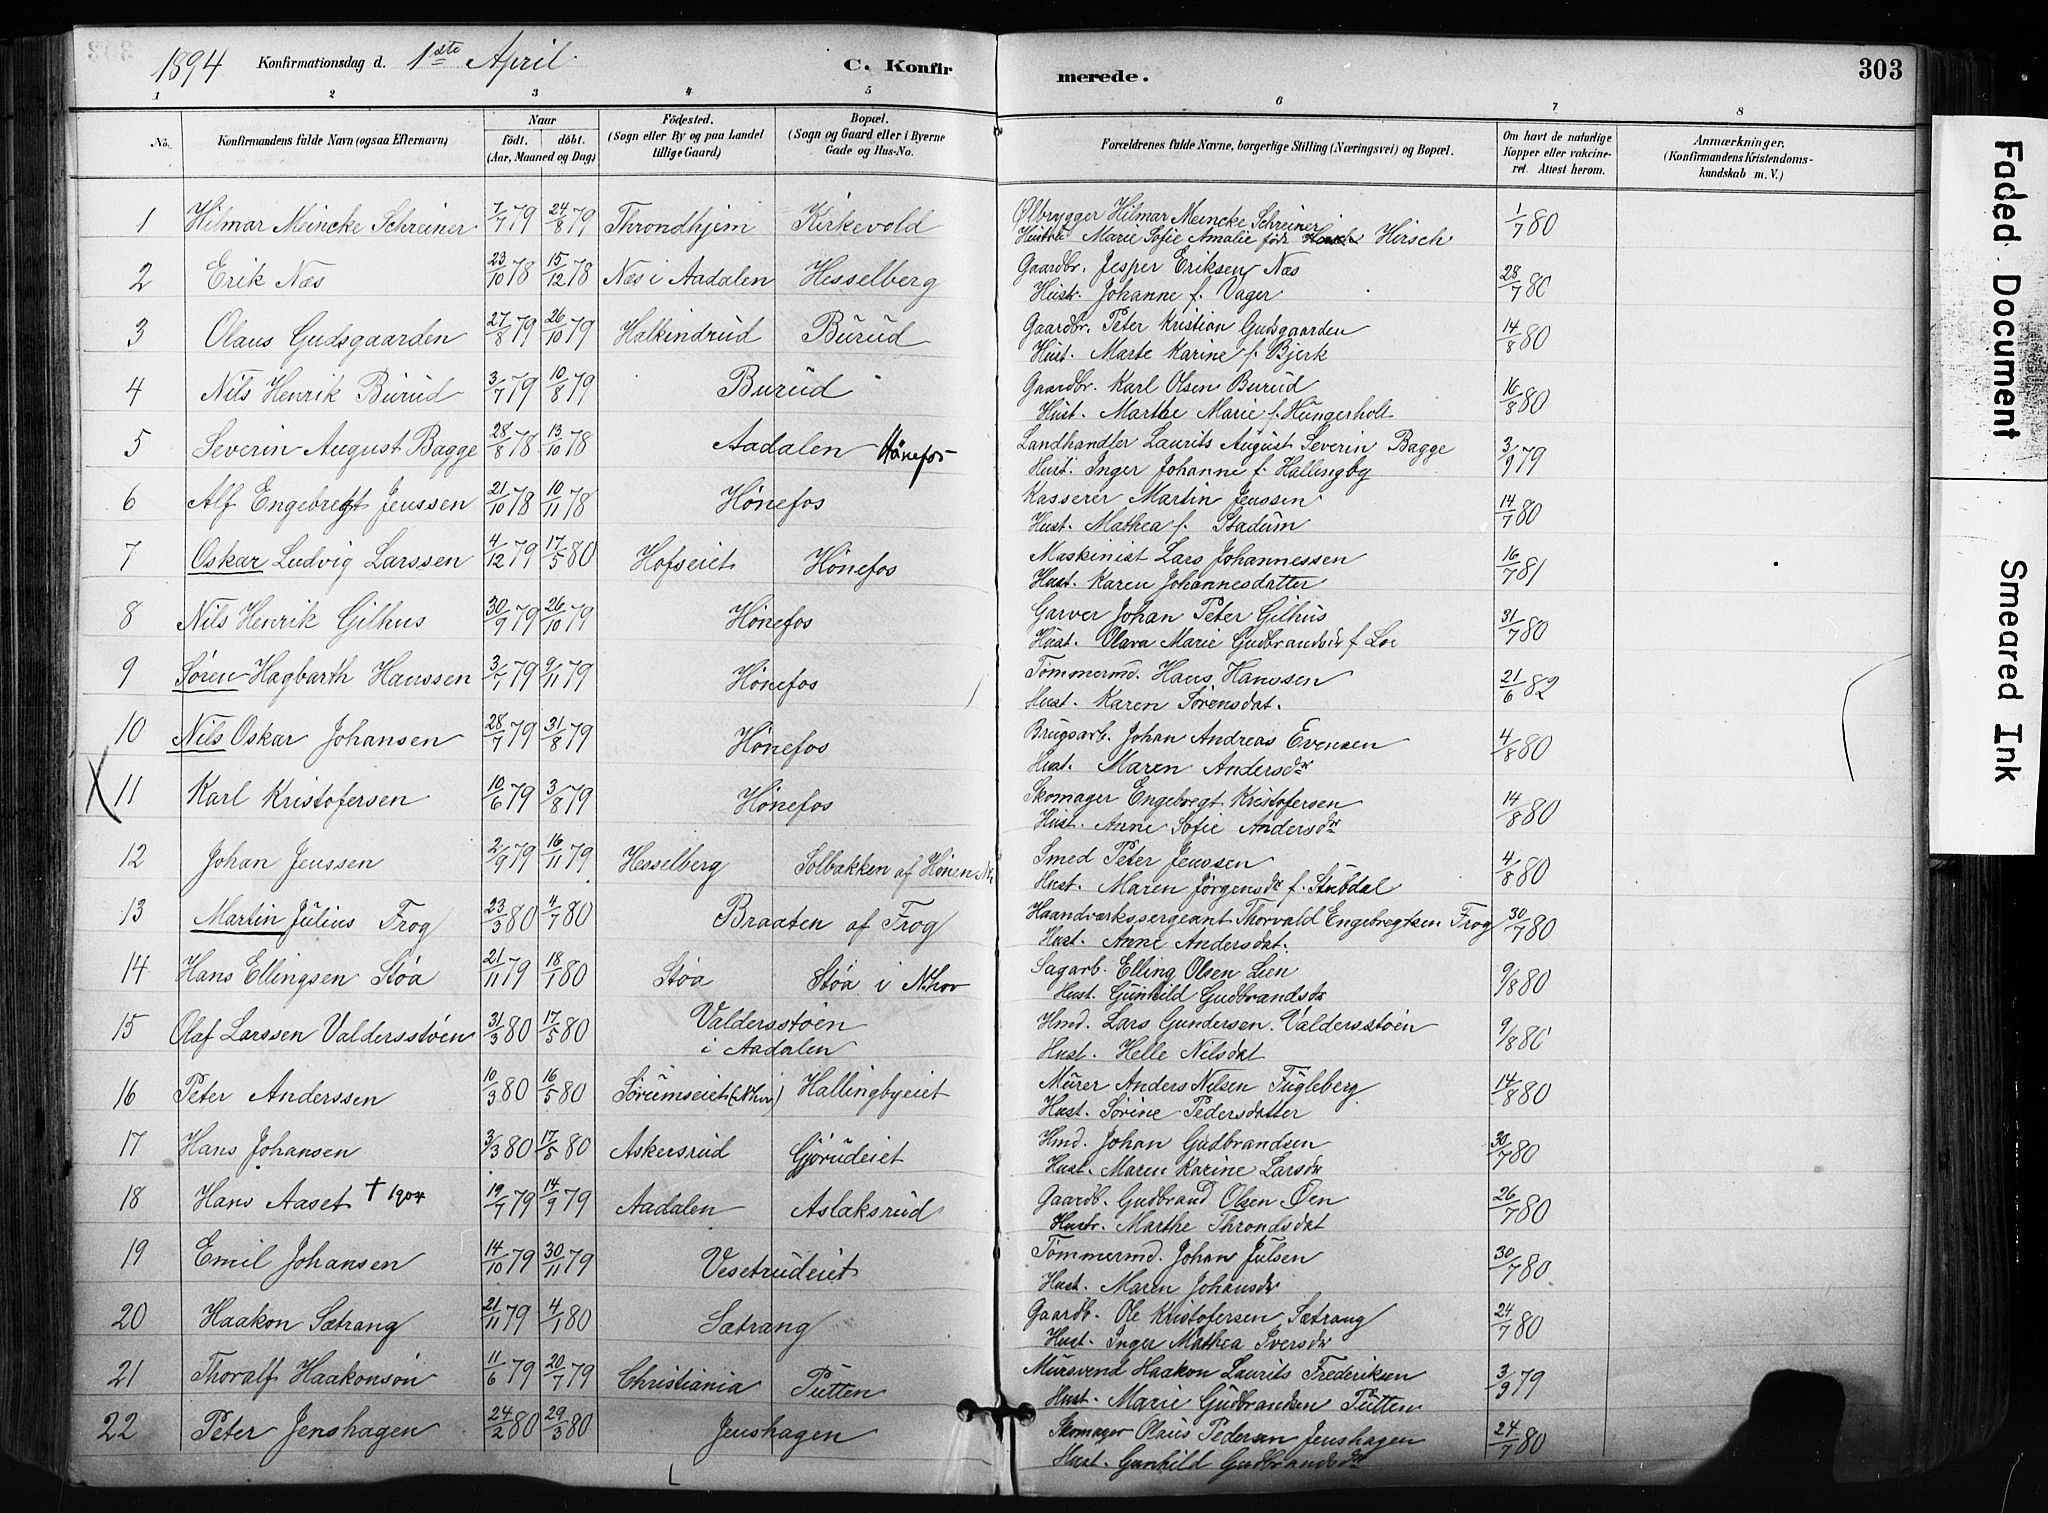 1894 Konfirmationsdag d. 1ste April. C. Konfirmerede. 303
1 2 3 4 5 6 7 8
No. Konfirmandens fulde Navn (ogsaa Efternavn) Naar født. døbt. (Aar, Maaned og Dag) Fødested. (Sogn eller By og paa Landet tillige Gaard) Bopæl. (Sogn og Gaard eller i Byerne Gade og Hus-No. Forældrenes fulde Navne, borgerlige Stilling (Næringsvei) og Bopæl. Om havt de naturlige Kopper eller vakcineret. Attest herom. Anmærkninger, (Konfirmandens Kristendomskundskab m. V.)
1 Hilmar Meincke Schreiner 7/7 79 24/8 79 Throndhjem Kirkevold Ølbrygger Hilmar Meincke Schreiner 1/7 80
Hustru Marie Sofie Amalie født Hirsch
2 Erik Næs 23/10 78 15/12 78 Næs i Aadalen Hesselberg Gaardbr. Jesper Eriksen Næs 28/7 80
Hustr. Johanne f. Vager
3 Olaus Gudsgaarden 27/8 79 26/10 79 Halkindrud Burud Gaardbr. Peter Kristian Gudsgaarden 14/8 80
Hust. Marte Karine f. Bjerk
4 Nils Henrik Burud 3/7 79 10/8 79 Burud Gaardbr. Karl Olsen Burud 16/8 80
Hust. Marthe Marie f. Hungerholt
5 Severin August Bagge 28/8 78 13/10 78 Aadalen Hönefos Landhandler Laurits August Severin Bagge 3/9 79
Hust. Inger Johanne f. Hallingby
6 Alf Engebregt Jenssen 21/10 78 10/11 78 Hønefos Kasserer Martin Jenssen 14/7 80
Hust. Mathea f. Stadum
7 Oskar Ludvig Larssen 4/12 79 17/5 80 Hofseiet Hønefos Maskinist Lars Johannessen 16/7 81
Hust. Karen Johannesdatter
8 Nils Henrik Gilhus 30/9 79 26/10 79 Hønefos Garver Johan Peter Gilhus 31/7 80
Hust. Olava Marie Gudbrandsdr f. Loe
9 Søren Hagbarth Hanssen 3/7 79 9/11 79 Hønefos Tømmermd. Hans Hanssen 21/6 82
Hust. Karen Sørensdat.
10 Nils Oskar Johansen 28/7 79 31/8 79 Hønefos Brugsarb. Johan Andreas Evensen 4/8 80
Hust. Maren Andersdr
X 11 Karl Kristofersen 10/6 79 3/8 79 Hønefos Skomager Engebregt Kristofersen 14/8 80
Hust. Anne Sofie Andersdr
12 Johan Jenssen 2/9 79 16/11 79 Hesselberg Solbakken af Hønen Smed Peter Jenssen 4/8 80
Hust. Maren Jørgensdr f. Stubdal
13 Martin Julius Frog 23/3 80 4/7 80 Braaten af Frog Haandværkssergeant Thorvald Engebregtsen Frog 30/7 80
Hust. Anne Andersdat.
14 Hans Ellingsen Støa 21/11 79 18/1 80 Støa Støa i N.hov Sagarb. Elling Olsen Lien 9/8 80
Hust. Gunhild Gudbrandsdr
15 Olaf Larssen Valdersstøen 31/3 80 17/5 80 Valdersstøen Hmd. Lars Gundersen Valdersstøen 9/8 80
i Aadalen Hust. Helle Nilsdat
16 Peter Anderssen 10/3 80 16/5 80 Sørumseiet (N.hov) Hallingbyeiet Murer Anders Nilsen Fugleberg 14/8 80
Hust. Sørine Pedersdatter
17 Hans Johansen 3/3 80 17/5 80 Askersrud Gjørudeiet Hmd. Johan Gudbrandsen 30/7 80
Hust. Maren Karine Larsdr
18 Hans Aaset † 1904 19/7 79 14/9 79 Aadalen Aslaksrud Gaardb. Gudbrand Olsen Øen 26/7 80
Hustr. Marthe Throndsdat
19 Emil Johansen 14/10 79 30/11 79 Vesetrudeiet Tømmermd. Johan Julsen 30/7 80
Hust. Maren Johansdr
20 Haakon Sætrang 21/11 79 4/1 80 Sætrang Gaardb. Ole Kristofersen Sætrang 24/7 80
Hust. Inger Mathea Iversdr
21 Thoralf Haakonsøn 11/6 79 20/7 79 Christiania Putten Mursvend Haakon Laurits Frederiksen 3/9 79
Hust. Marie Gudbrandsen Putten
22 Peter Jenshagen 24/2 80 29/3 80 Jenshagen Skomager Olaus Pedersen Jenshagen 24/7 80
Hust. Gunhild Gudbrandsdr
Faded Document
Smeared Ink